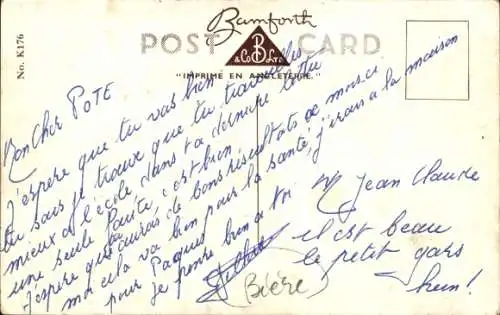 No. K176
Bamforth
POST CARD
B
& Co Ltd
"IMPRIMÉ EN ANGLETERRE."
Mon Cher POTE
J'espère que tu vas bien
tu sais je trouve que tu travailles
mieux à l'école dans ta dernière lettre
une seule faute, c'est bien
J'espère que tu auras de bons résultats de
moi cela va bien pour la santé, j'irais à la maison
pour Paques
je pense bien à toi
(Bière)
M Jean Claude
il est beau
le petit gars
hein!